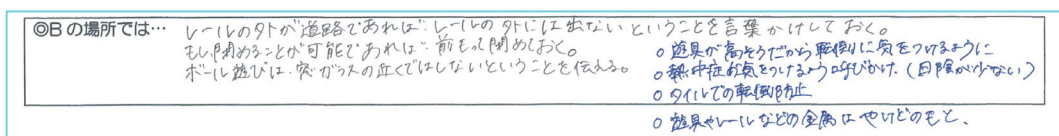 ◎Bの場所では… レールの外が道路であれば、レールの外には出ないということを言葉かけしておく。
もし閉めることが可能であれば、前もって閉めておく。
ボール遊びは、窓ガラスの近くではしないということを伝える。
○ 遊具が高そうだから転倒に気をつけるように
○ 熱中症お気をつけるよう呼びかけ。(日陰が少ない)
○ タイルでの転倒防止
○ 遊具やレールなどの金属はやけどのもと、